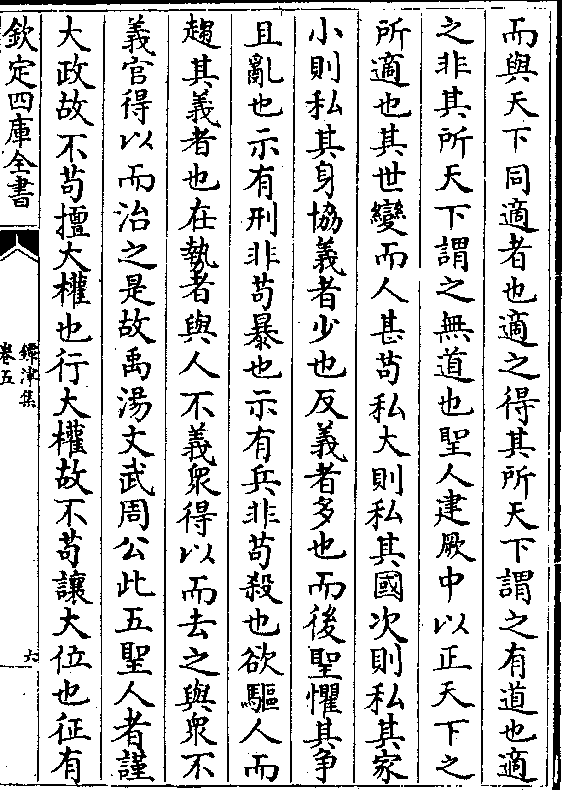 而與天下同適者也適之得其所天下謂之有道也適
之非其所天下謂之無道也聖人建厥中以正天下之
所適也其世變而人甚苟私大則私其國次則私其家
小則私其身協義者少也反義者多也而後聖懼其争
且亂也示有刑非苟暴也示有兵非苟殺也欲驅人而
趨其義者也在埶者與人不義衆得以而去之與衆不
義官得以而治之是故禹湯文武周公此五聖人者謹
大政故不苟擅大權也行大權故不苟讓大位也征有
欽定四庫全書
鐔津集
卷五
六